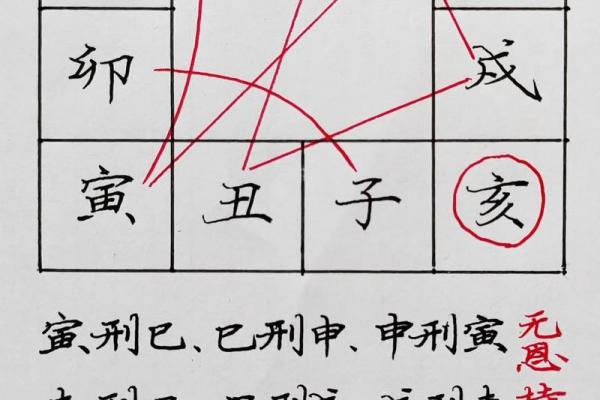 卯 戌
寅 丑 子 亥
寅刑巳、巳刑申、申刑寅 无恩